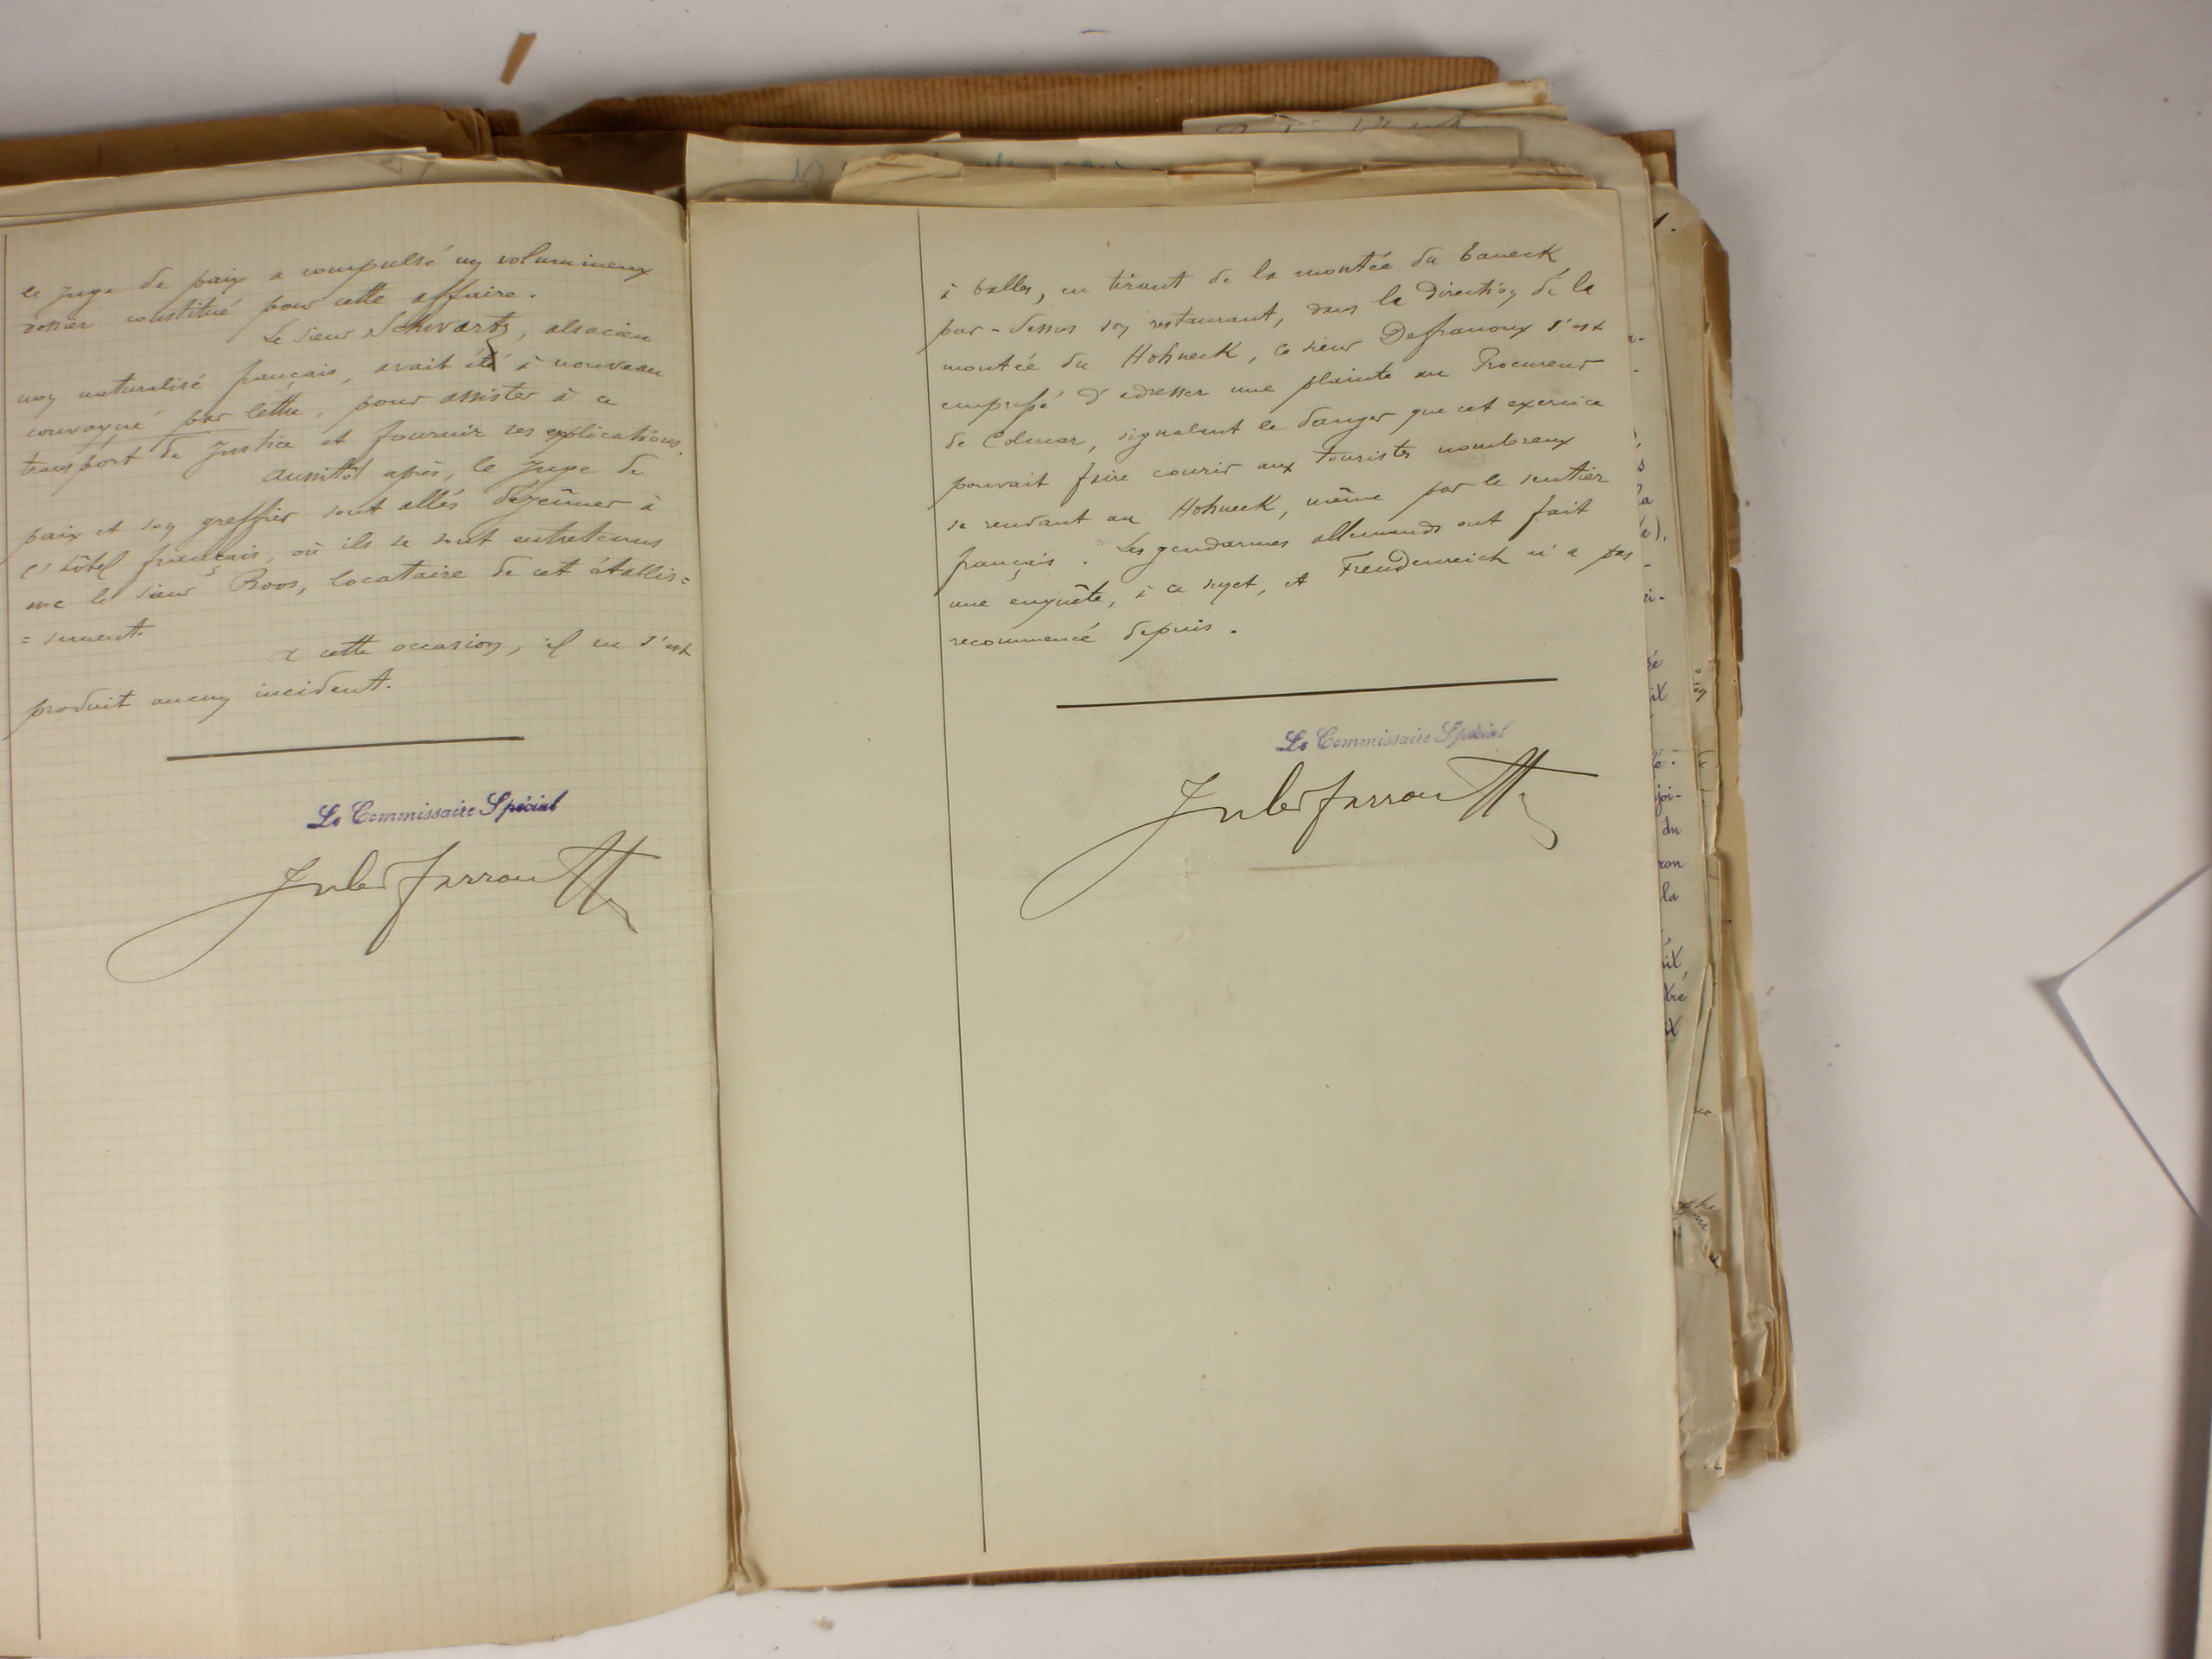 le juge de paix a compulsé un volumineux
dossier constitué pour cette affaire.
Le sieur Schwartz, alsacien
non naturalisé français, avait été à nouveau
convoqué par lettre, pour assister à ce
transport de Justice et fournir ses explications.
Aussitôt après, le Juge de
paix et son greffier sont allés déjeûner à
l'hôtel français, où ils se sont entretenus
avec le sieur Roos, locataire de cet établis=
=sement.
A cette occasion, il ne s'est
produit aucun incident.
Le Commissaire Spécial
à balles, en tirant de la montée du Taneck
par-dessus son restaurant, dans la direction de la
montée du Hohneck, le sieur Defranoux s'est
empressé d'adresser une plainte au Procureur
de Colmar, signalant le danger que cet exercice
pouvait faire courir aux touristes nombreux
se rendant au Hohneck, même par le sentier
français. Les gendarmes allemands ont fait
une enquête, à ce sujet, et Freudenreich n'a pas
recommencé depuis.
Le Commissaire Spécial